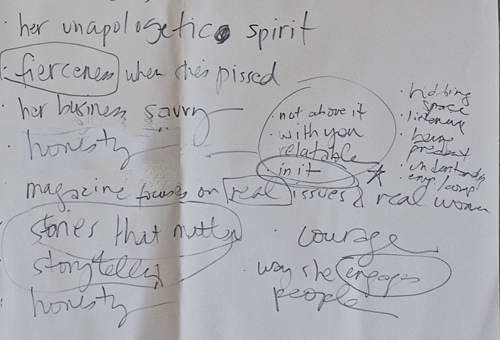 · her unapologetic spirit
· fierceness when she's pissed
· her business savvy
· honesty
· not above it
· with you
relatable
· in it
· holding
space
· listening
· being
present
· understands
magazine focuses on real issues & real women
stories that matter
storytelling
honesty
· courage
· way she engages
people